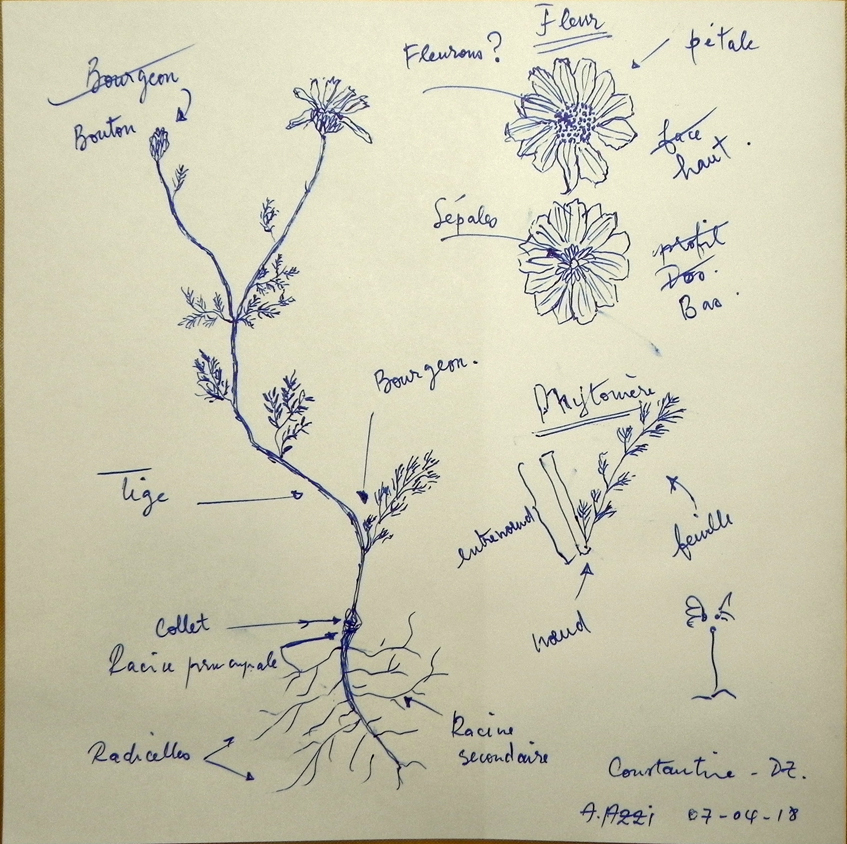 Fleur
Fleurons?
pétale
Bourgeon
Bouton
face
haut.
Sépales
profil
Bas.
Bourgeon.
Phytomère
Tige
entrenœud
feuille
nœud
Collet
Racine principale
Radicelles
Racine
secondaire
Constantine - DZ.
A.AZZi 07-04-18